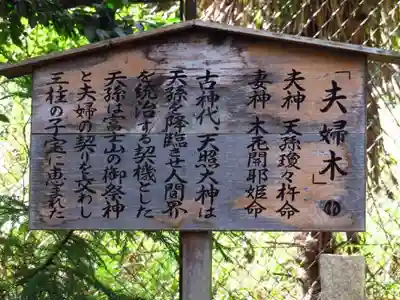 「夫婦木」
夫神 天孫瓊々杵命
妻神 木花開耶姫命
古神代、天照大神は
天孫を降臨させ人間界
を統治する契機とした
天孫は当山の御祭神
と夫婦の契りを交わし
三柱の子宝に恵まれた